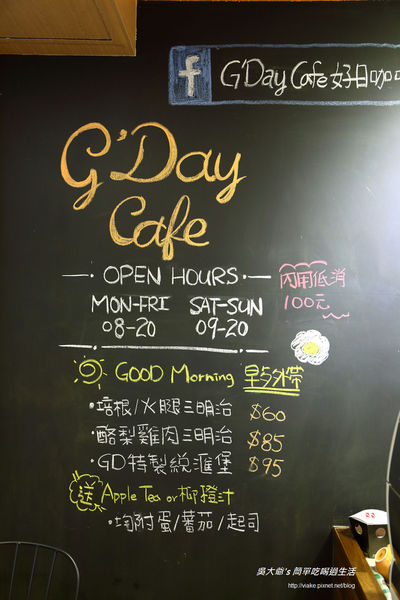 f G'Day Cafe 好日咖
G'Day
Cafe
OPEN HOURS
MON-FRI SAT-SUN
08-20 09-20
內用低消
100元
GOOD Morning 早午外帶
·培根/火腿三明治 $60
·酪梨雞肉三明治 $85
·GD特製總匯堡 $95
送 Apple Tea or 柳橙汁
·均附蛋/蕃茄/起司
吳大爺's 簡單吃喝過生活
http://viake.pixnet.net/blog